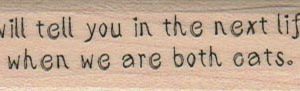 will tell you in the next lif
when we are both cats.